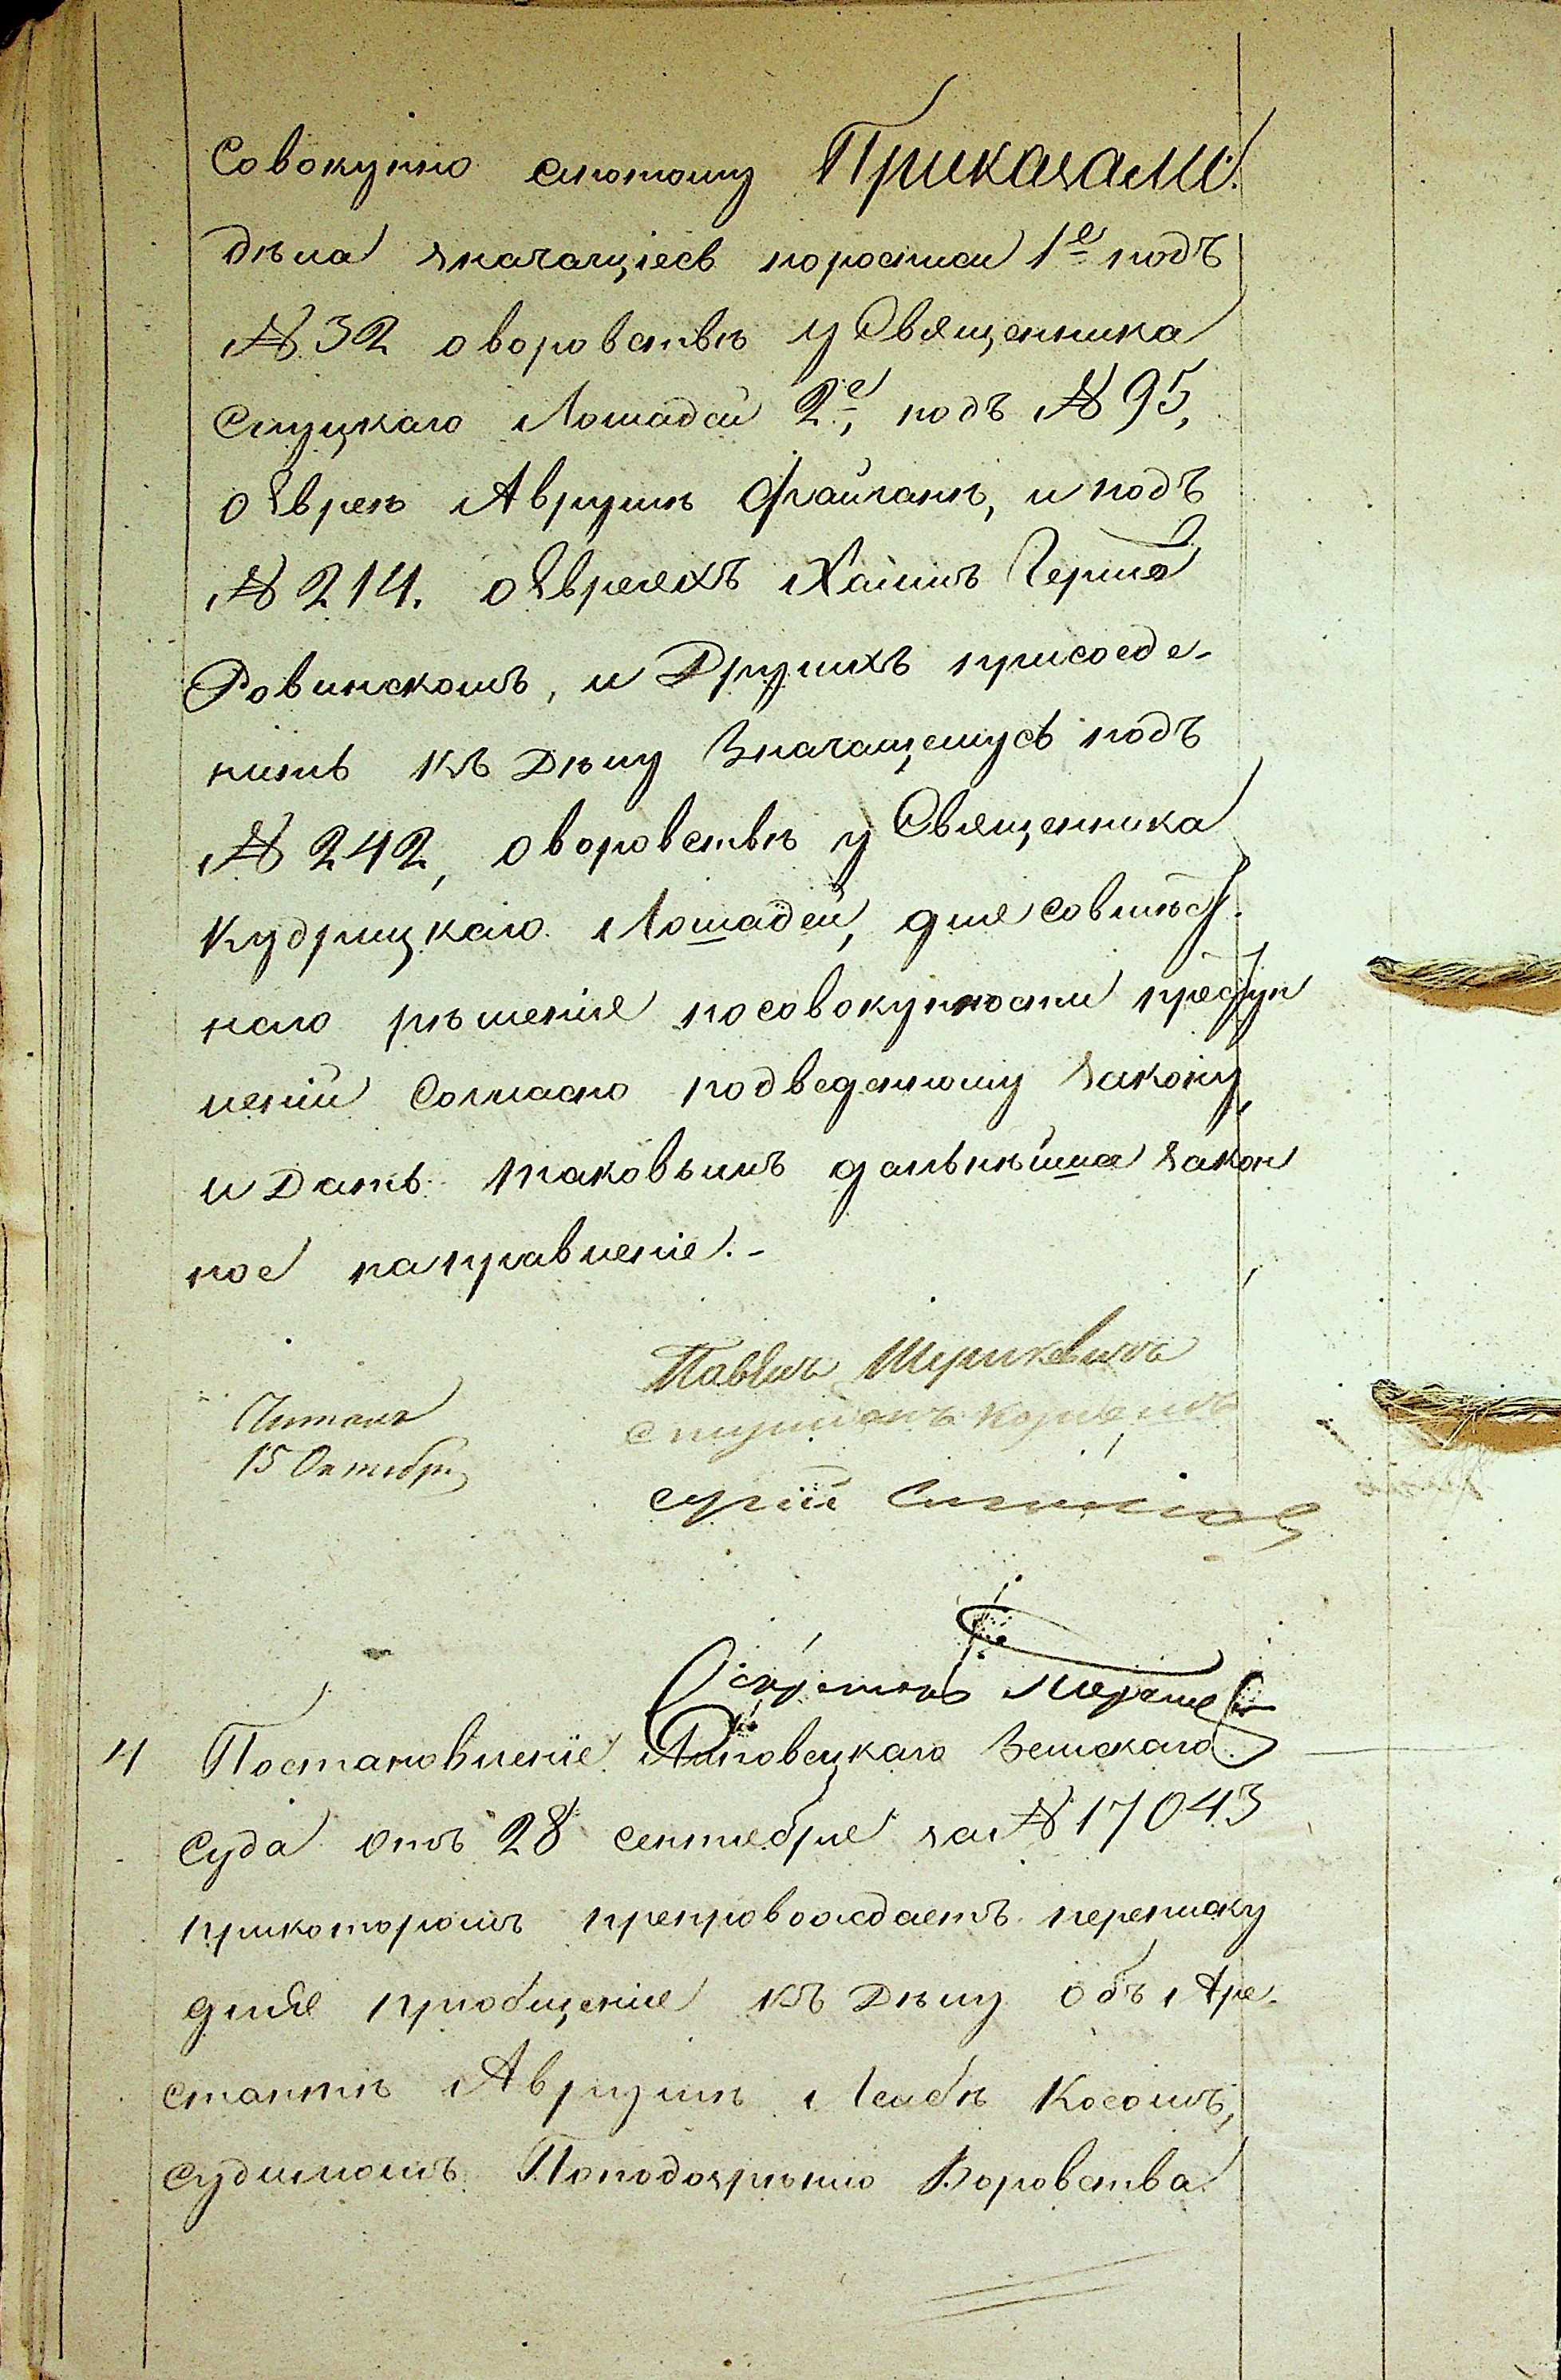 Совокупно а потому Приказали:
дѣла значащіесь по росписи 1е подъ
№ 32 о воровствѣ у Священника
Слуцкаго Лошадей 2е, подъ № 95,
о Евреѣ Аврумѣ Файганѣ, и подъ
№ 214. о Евреяхъ Хаимѣ Гершѣ
Ровинскомъ, и Другихъ присоеде-
нить къ Дѣлу Значащемусь подъ
№ 242, о воровствѣ у Священника
Кудрицкаго Лошадей, для совмѣст-
наго рѣшенія по совокупности преступ
леній Согласно подведенному закону,
и Дать таковымъ дальнѣйшее закон
ное направленіе.-
Павелъ
Читалъ
15 Октября
Секретарь
4 Постановленіе Липовецкаго Земскаго
Суда отъ 28 сентября за № 17043
при которомъ препровождаетъ переписку
для пріобщенія къ Дѣлу объ Аре-
стантѣ Аврумѣ Лейбѣ Косомъ,
судимомъ По подозрѣнію Воровства